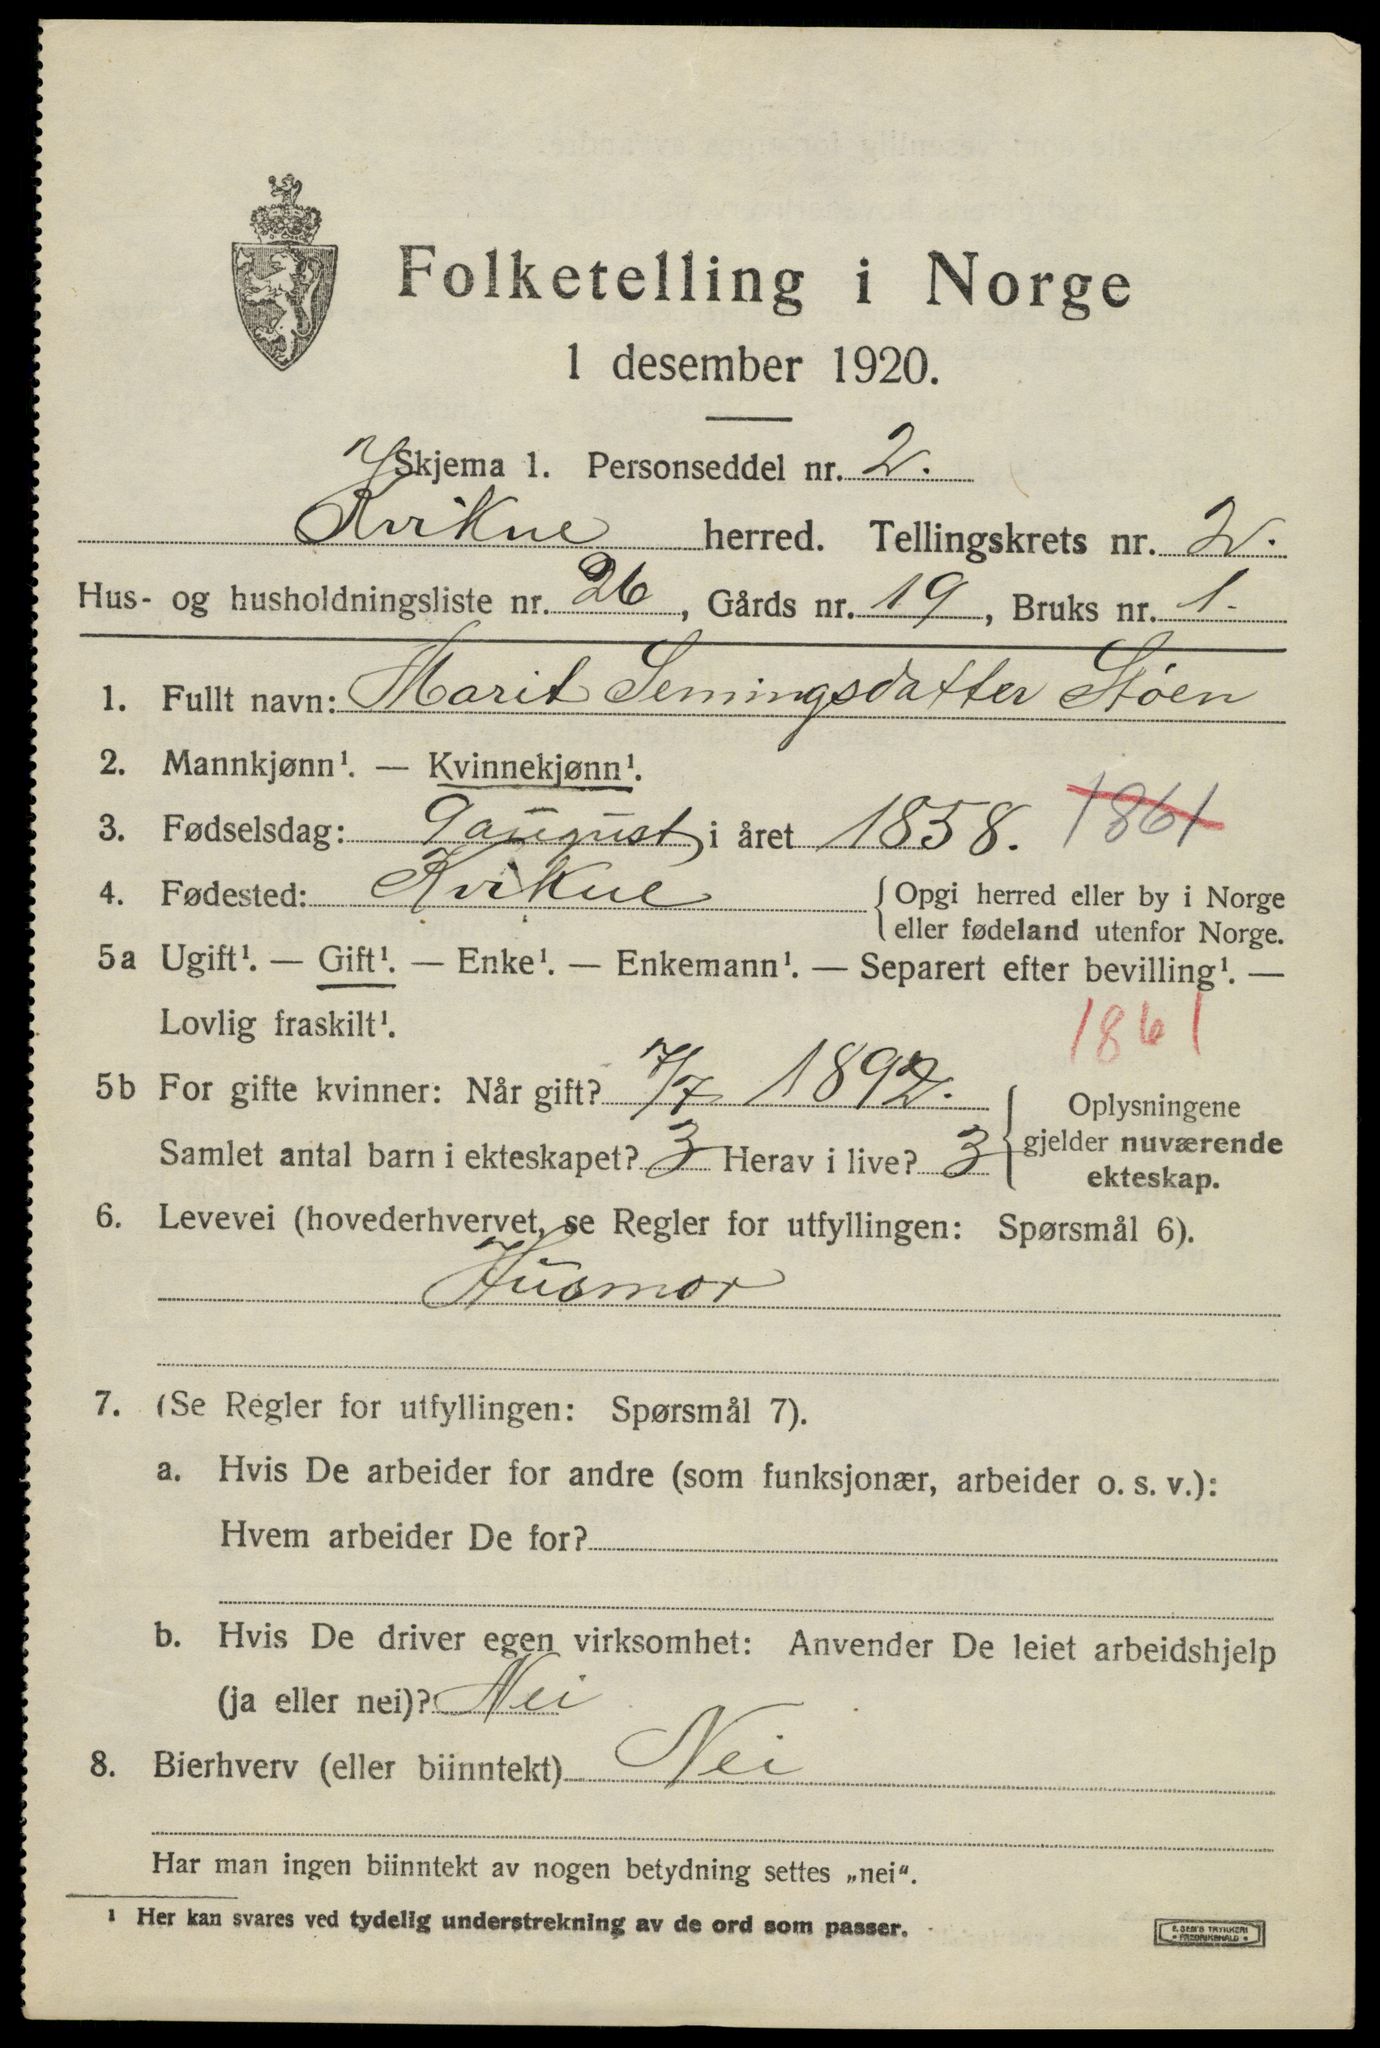 Folketelling i Norge
1 desember 1920.
Skjema 1. Personseddel nr. 2.
Kvikne herred. Tellingskrets nr. 2.
Hus- og husholdningsliste nr. 26, Gårds nr. 19, Bruks nr. 1.
1. Fullt navn: Marit Semingsdatter Støen
2. Mannkjønn¹. — Kvinnekjønn¹.
3. Fødselsdag: 9 august i året 1858. 1861
4. Fødested: Kvikne {Opgi herred eller by i Norge
eller fødeland utenfor Norge.
5a Ugift¹. — Gift¹. — Enke¹. — Enkemann¹. — Separert efter bevilling¹. —
Lovlig fraskilt¹. 1861
5b For gifte kvinner: Når gift? 7/7 1892. Oplysningene
Samlet antal barn i ekteskapet? 3 Herav i live? 3 {gjelder nuværende
ekteskap.
6. Levevei (hovederhvervet, se Regler for utfyllingen: Spørsmål 6).
Husmor
7. (Se Regler for utfyllingen: Spørsmål 7).
a. Hvis De arbeider for andre (som funksjonær, arbeider o. s. v.):
Hvem arbeider De for?
b. Hvis De driver egen virksomhet: Anvender De leiet arbeidshjelp
(ja eller nei)? Nei
8. Bierhverv (eller biinntekt) Nei
Har man ingen biinntekt av nogen betydning settes „nei“.
¹ Her kan svares ved tydelig understrekning av de ord som passer.
E. SEM'S TRYKKERI
• FREDRIKSHALD •